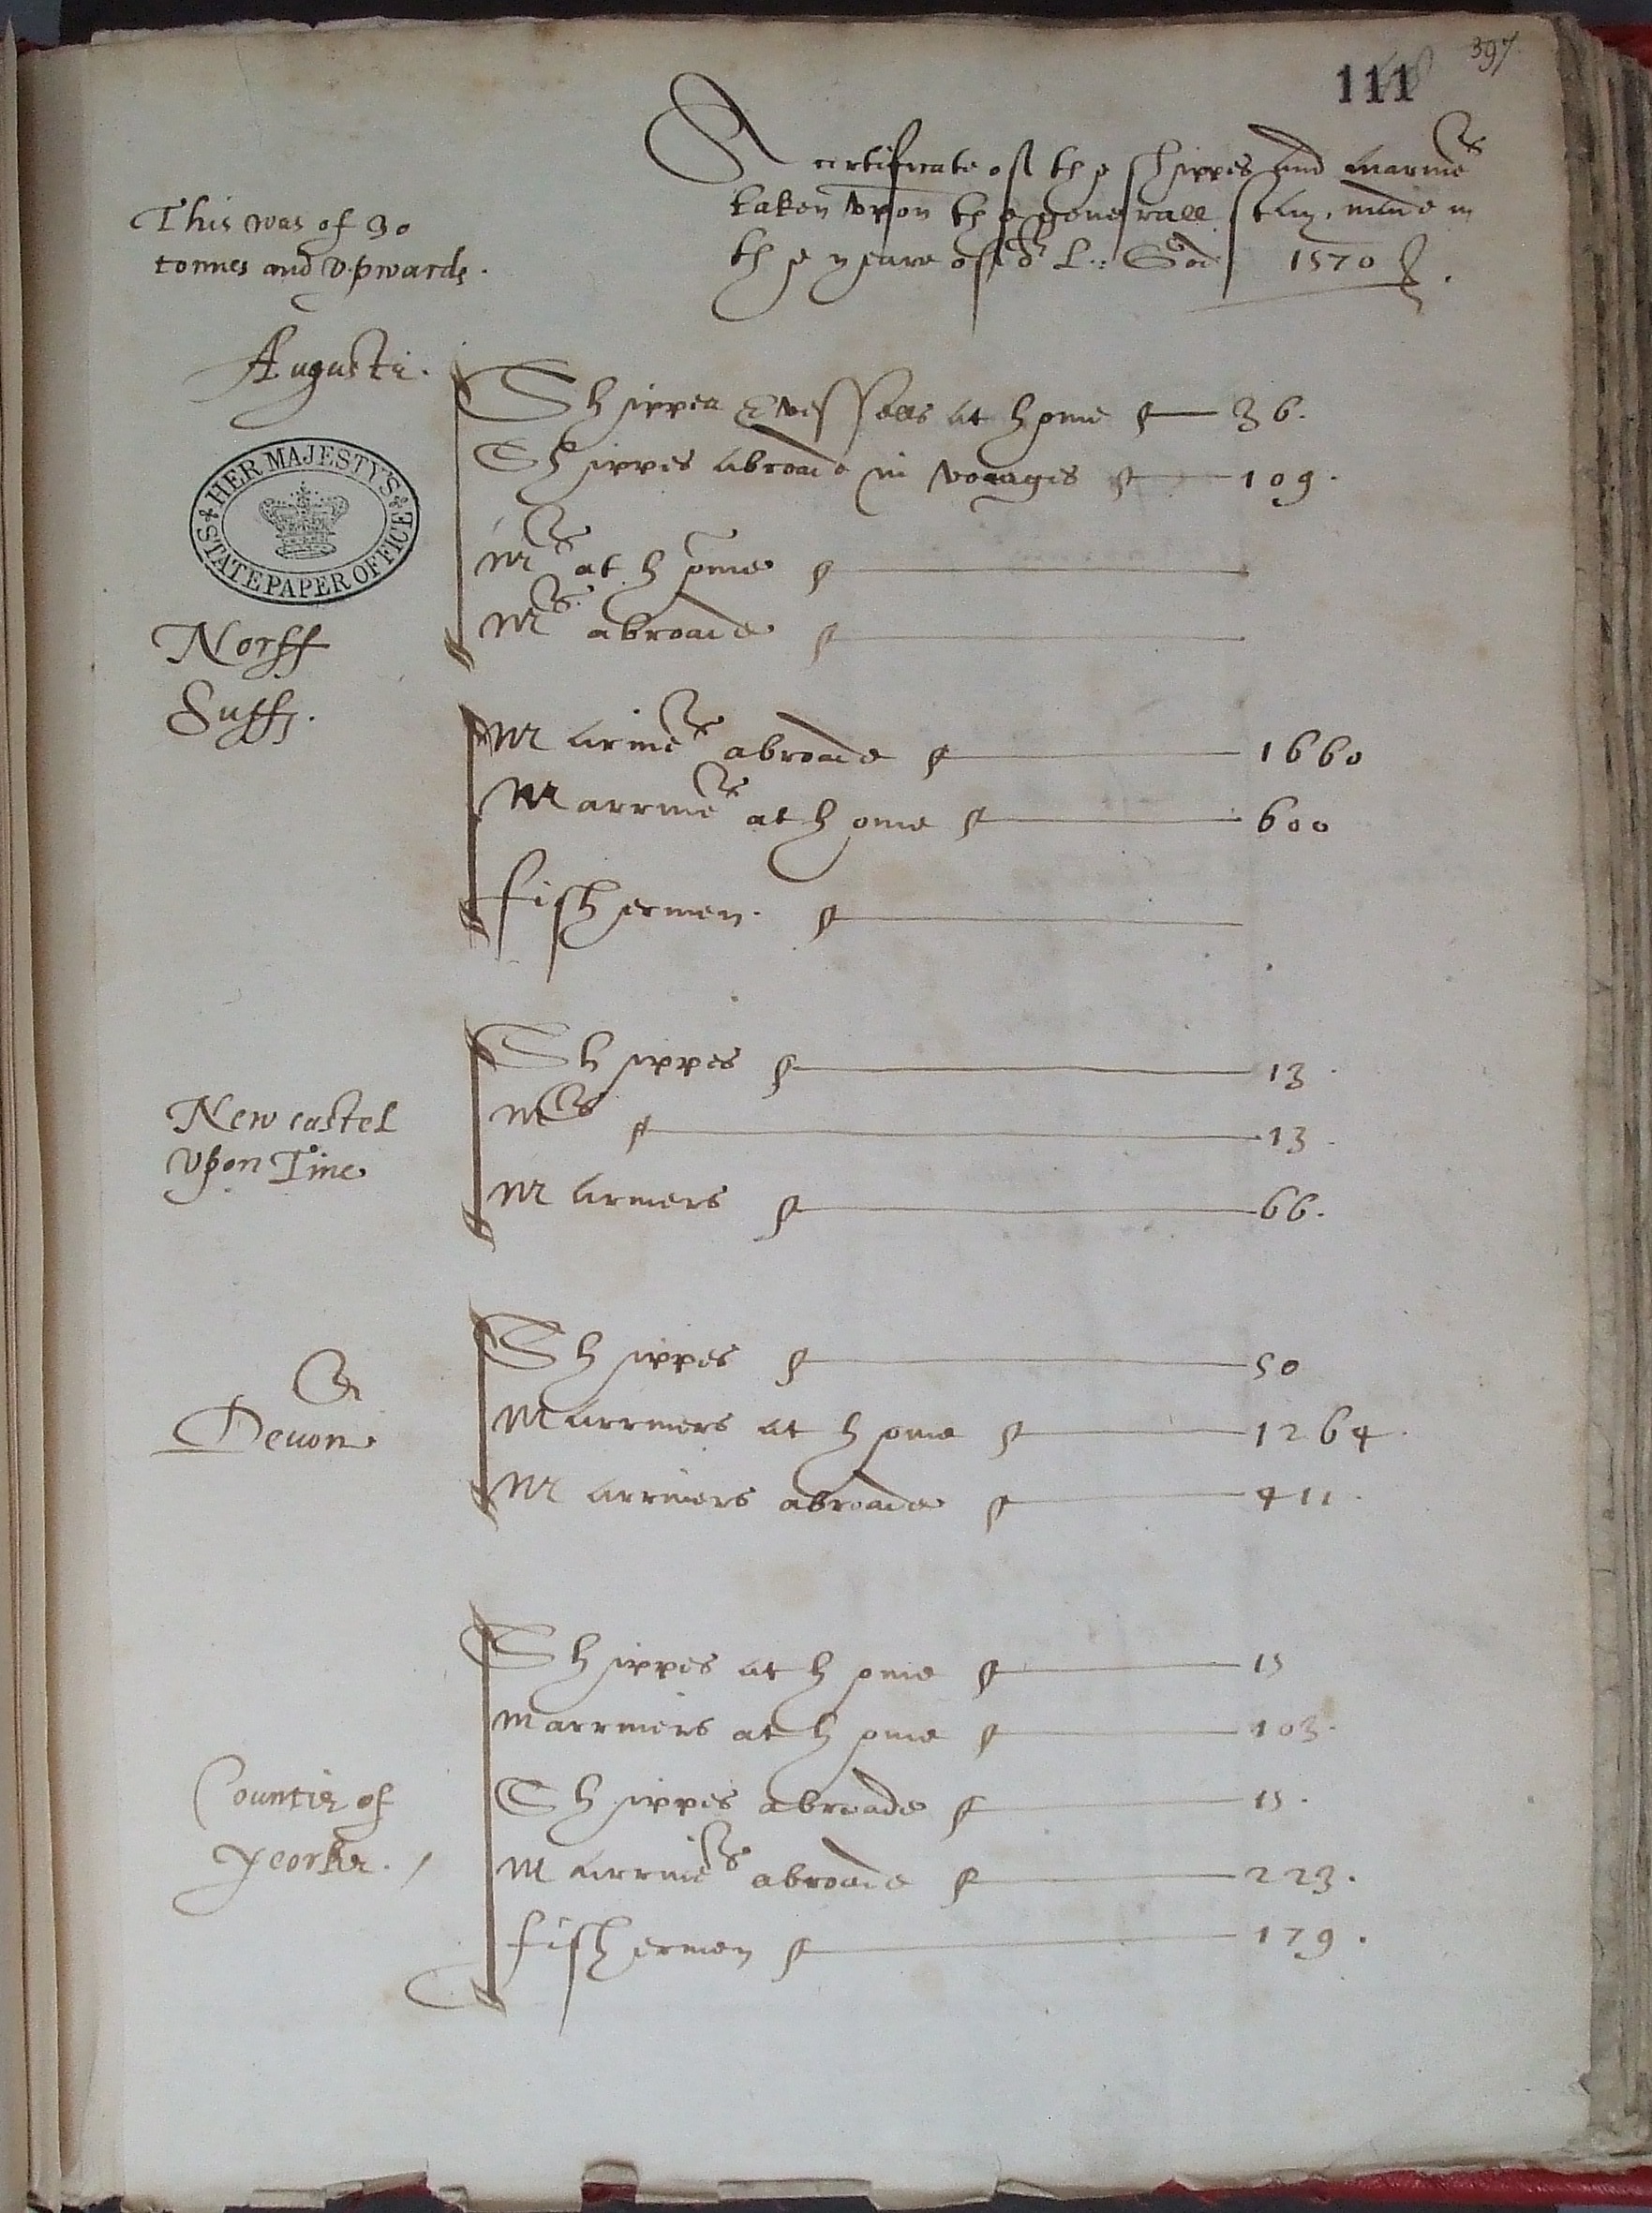 397
111
A certificate off the shippes and marinrs
taken vpon the generall stay, made in
the yeare off or L: God 1570
This was of 30
tonnes and vpwards.
Auguste.
Shippes & vesselles at home 36.
Shippes abroade in voiages 109.
HER MAJESTY'S
STATE PAPER OFFICE
Mrs at home
Mrs abroade
Norff
Suff.
Marinrs abroade 1660
Marrinrs at home 600
fishermen.
Newcastel
vpon Tine
Shippes 13.
Mrs 13.
Mariners 66.
Devon.
Shippes 50
Marriners at home 1264.
Marriners abroade 411.
Countie of
Yeorke.
Shippes at home 15
marriners at home 103.
Shippes abroade 15.
Marrinrs abroade 223.
fishermen 179.